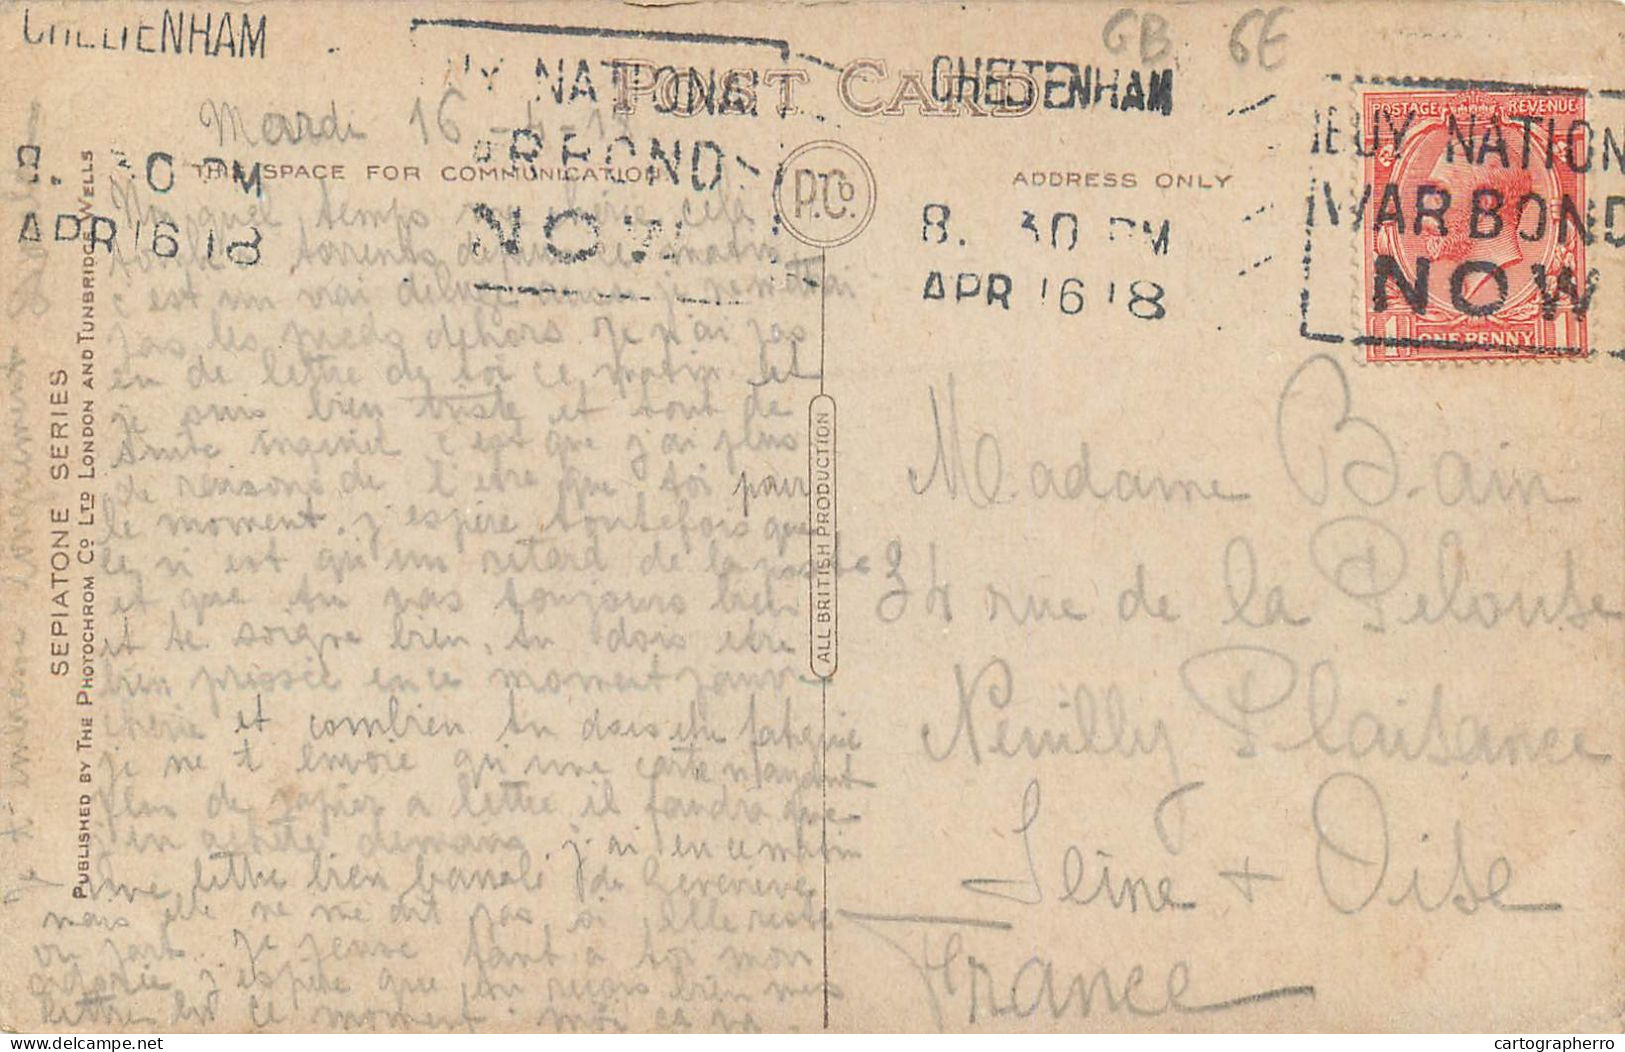 CHELTENHAM
8. 30 PM
APR 16 18
BUY NATIONAL
WAR BONDS
NOW
POST CARD
CHELTENHAM
8. 30 PM
APR 16 18
BUY NATION
WAR BOND
NOW
GB 6E
POSTAGE REVENUE
1 ONE PENNY 1
THIS SPACE FOR COMMUNICATION
P. Co.
ADDRESS ONLY
Mardi 16-4-18
quel temps chérie cela
tombe torrents depuis ce matin
c'est un vrai déluge aussi je
pas les pieds dehors. Je n'ai pas
eu de lettre de toi ce matin et
je suis bien triste et tout de
suite inquiet c'est que j'ai plus
de raisons de l'être que toi pour
le moment. j'espère toutefois que
ce n'est qu'un retard de la poste
et que tu vas toujours bien
et te soigne bien, tu dois être
bien pressée en ce moment
cherie et combien tu dois être fatiguée
je ne t'envoie qu'une carte n'ayant
plus de papier a lettre il faudra que
j'en achète demain. j'ai eu ce matin
une lettre bien banale de Geneviève
mais elle ne me dit pas si elle reste
ou part. Je pense tant a toi mon
adorée j'espère que tu reçois bien mes
lettres en ce moment. moi ca va.
Je t'embrasse longuement
Madame Bain
34 rue de la Pelouse
Neuilly Plaisance
Seine & Oise
France
SEPIATONE SERIES
PUBLISHED BY THE PHOTOCHROM CO LTD LONDON AND TUNBRIDGE WELLS
ALL BRITISH PRODUCTION
cartographerro